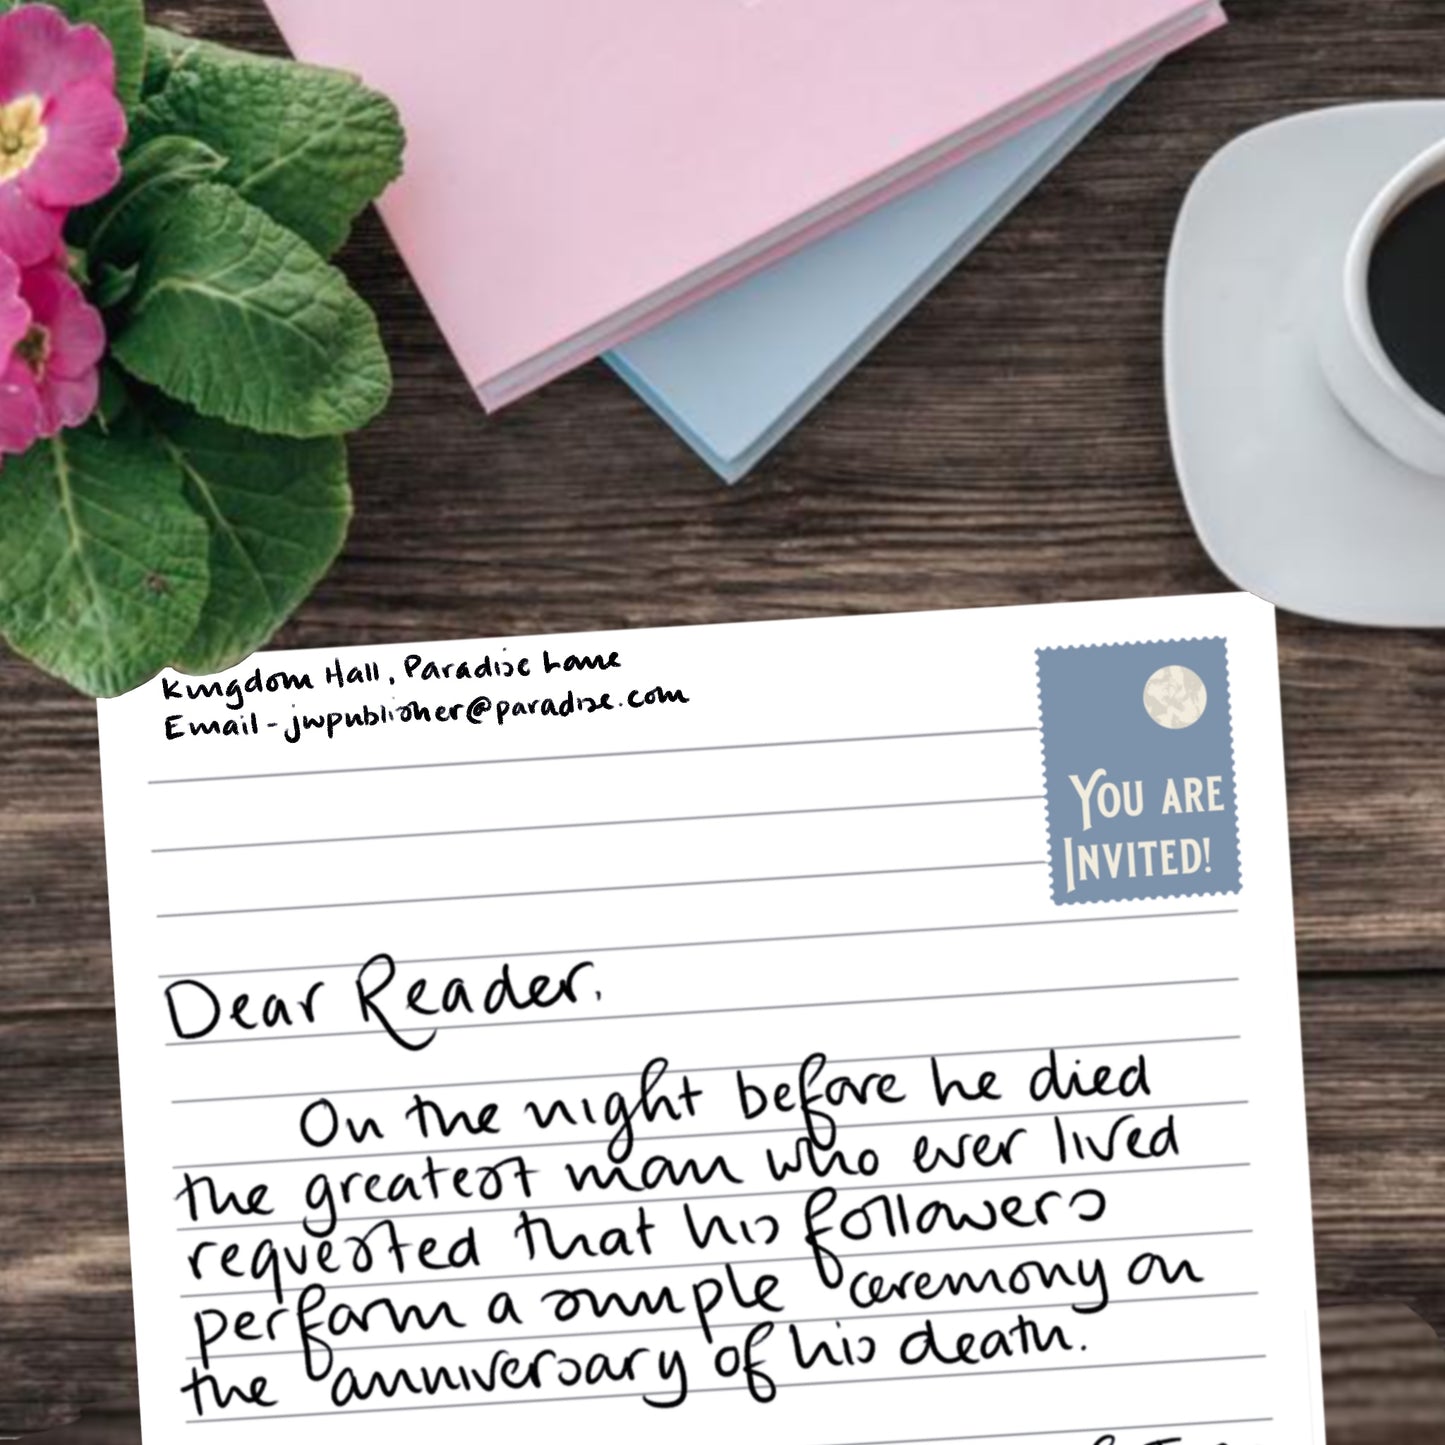 Kingdom Hall, Paradise Lane
Email - jwpublisher@paradise.com
YOU ARE
INVITED!
Dear Reader,
On the night before he died
the greatest man who ever lived
requested that his followers
perform a simple ceremony on
the anniversary of his death.